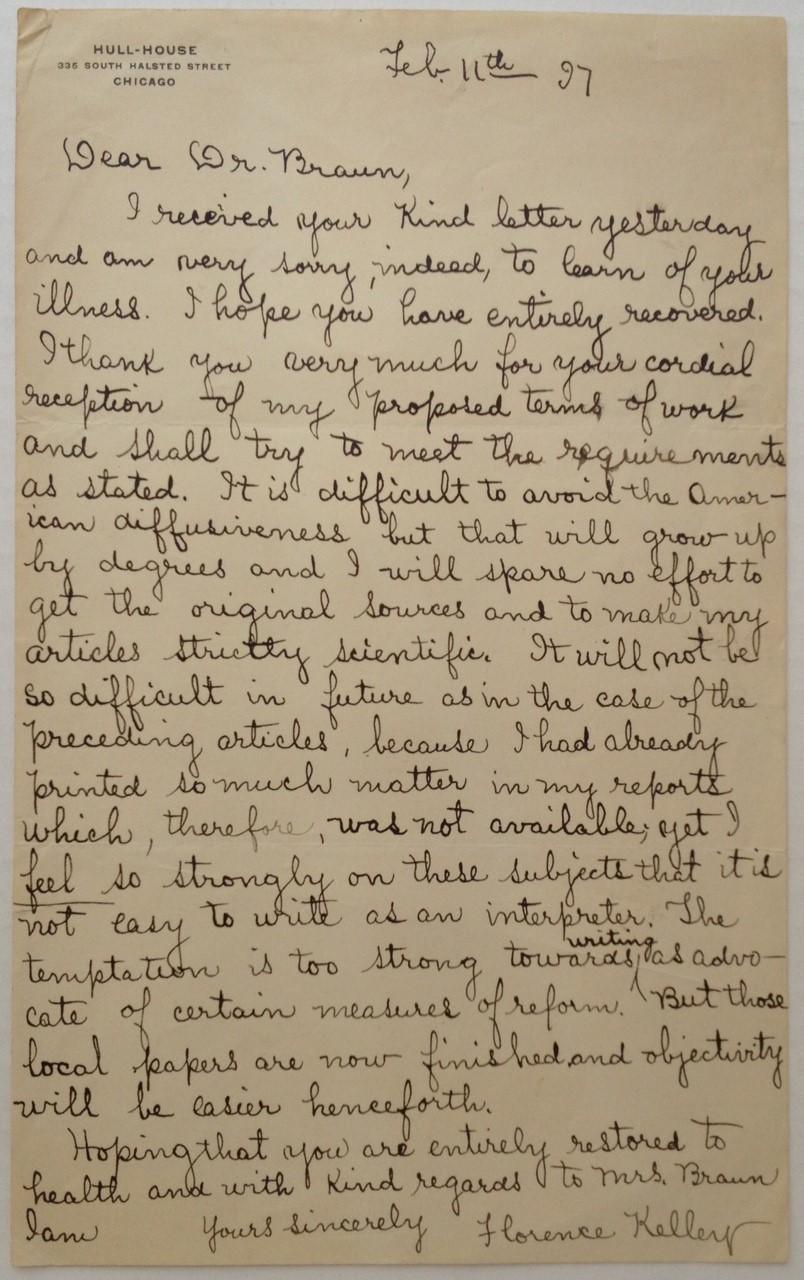 HULL-HOUSE
335 SOUTH HALSTED STREET
CHICAGO
Feb. 11th 97
Dear Dr. Braun,
I received your kind letter yesterday
and am very sorry, indeed, to learn of your
illness. I hope you have entirely recovered.
I thank you very much for your cordial
reception of my proposed terms of work
and shall try to meet the requirements
as stated. It is difficult to avoid the Amer-
ican diffusiveness but that will grow up
by degrees and I will spare no effort to
get the original sources and to make my
articles strictly scientific. It will not be
so difficult in future as in the case of the
preceding articles, because I had already
printed so much matter in my reports
which, therefore, was not available; yet I
feel so strongly on these subjects that it is
not easy to write as an interpreter. The
temptation is too strong towards writing as advo-
cate of certain measures of reform. But those
local papers are now finished and objectivity
will be easier henceforth.
Hoping that you are entirely restored to
health and with kind regards to Mrs. Braun
I am Yours sincerely Florence Kelley